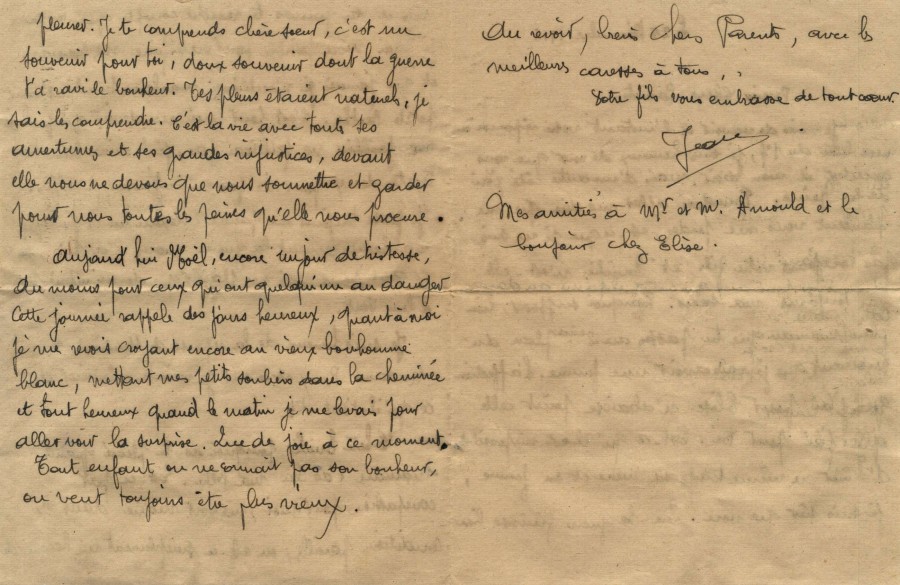 pleurer. Je te comprends chère soeur, c'est un
souvenir pour toi, doux souvenir dont la guerre
t'a ravi le bonheur. Tes pleurs étaient naturels, je
sais les comprendre. C'est la vie avec touts ses
amertumes et ses grandes injustices, devant
elle nous ne devons que nous soumettre et garder
pour nous toutes les peines qu'elle nous procure.
Aujourd'hui Noël, encore un jour de tristesse,
du moins pour ceux qui ont quelqu'un au danger
Cette journée rappele des jours heureux, quant à moi
je me revois croyant encore au vieux bonhomme
blanc, mettant mes petits souliers dans la cheminée
et tout heureux quand le matin je me levais pour
aller voir la surprise. Que de joie à ce moment.
Tout enfant on ne connait pas son bonheur,
on veut toujours être plus vieux.
Au revoir, biens chers Parents, avec les
meilleurs caresses à tous,
Votre fils vous embrasse de tout coeur
Jean
Mes amitiés à Mr et M. Arnould et le
bonjour chez Elise.